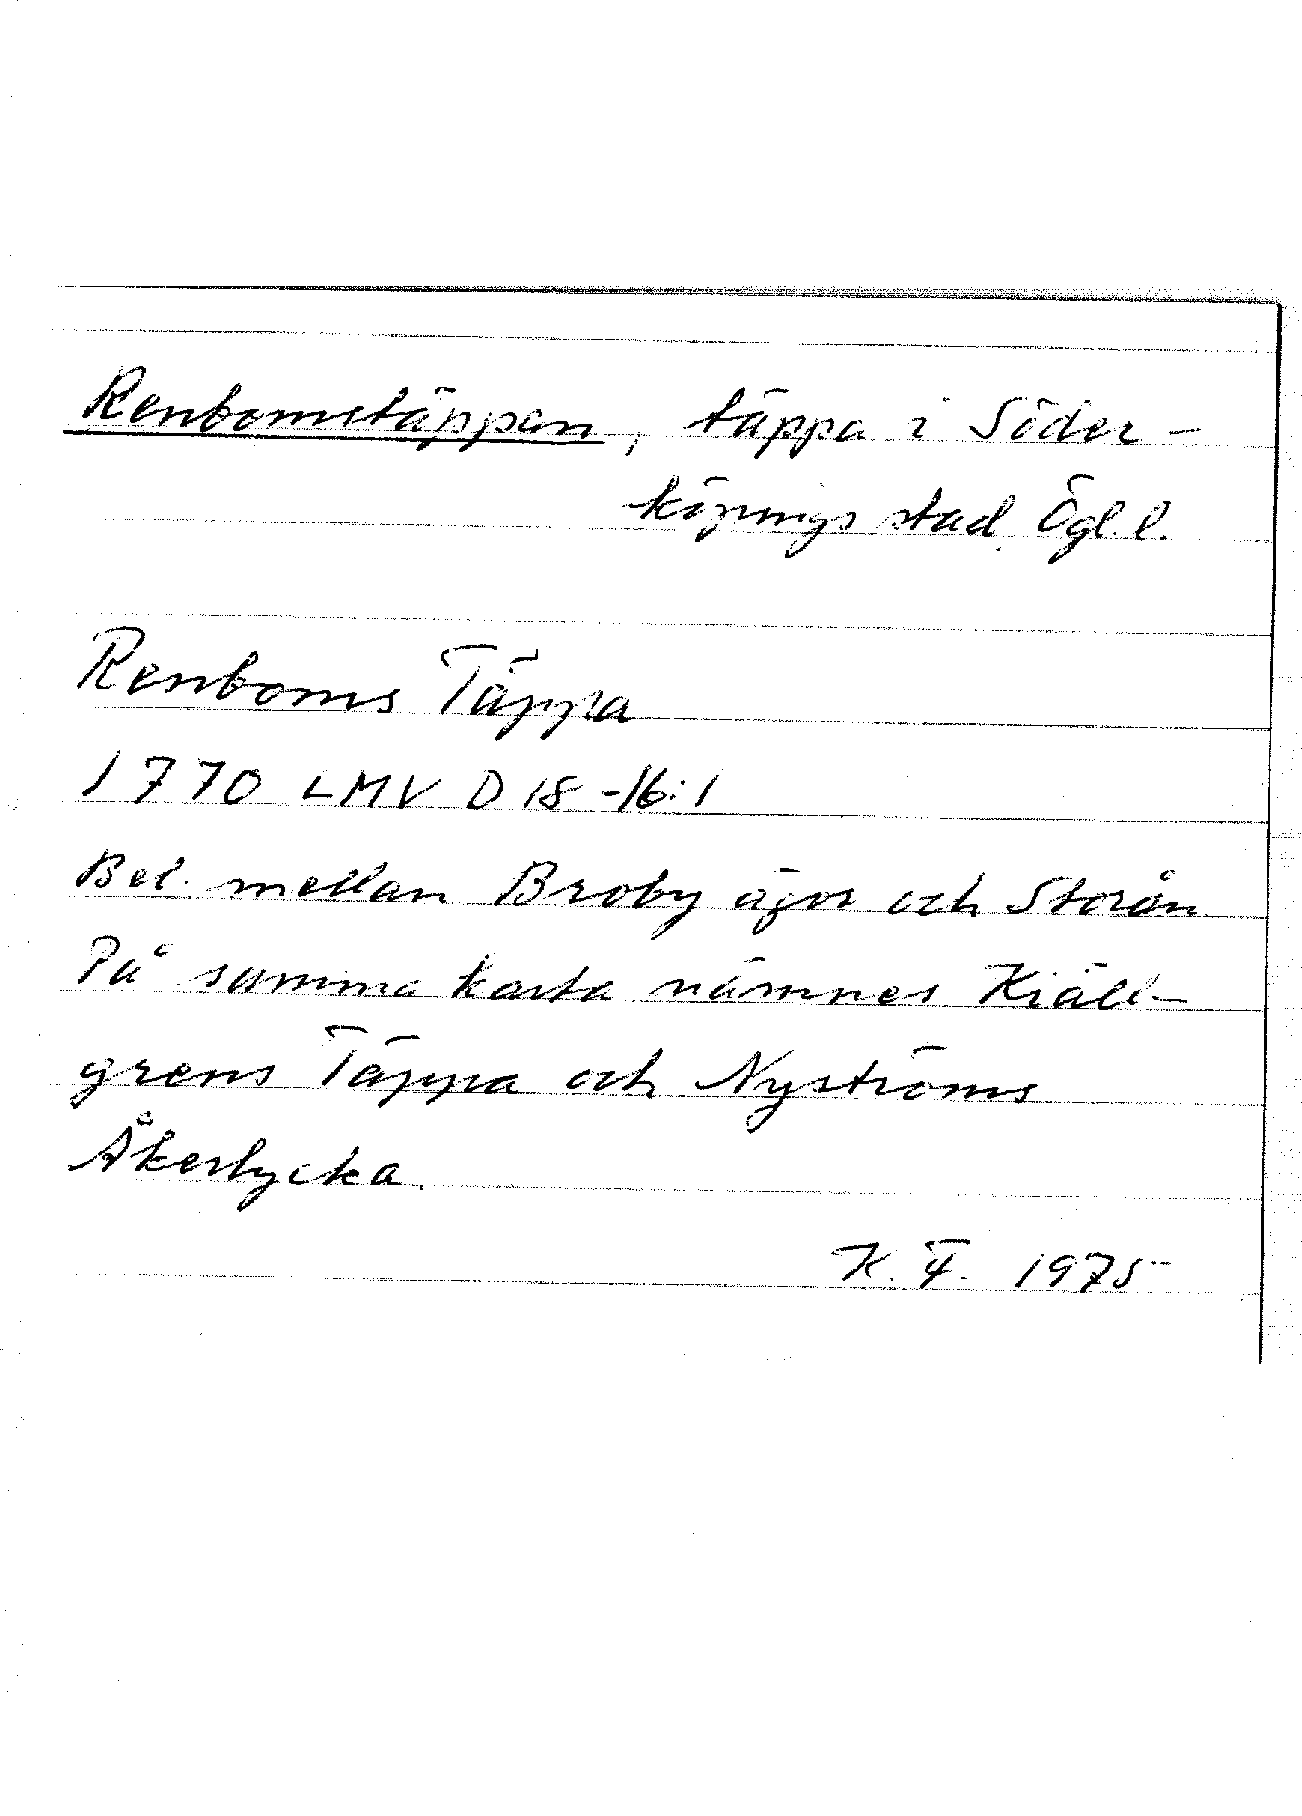 Renbomstäppan, täppa i Söder-
köpings stad Ögl. l.
Renboms Täppa
1770 LMV D 18-16:1
Bel. mellan Broby ägor och Storån
På samma karta nämnes Kiäll-
grens Täppa och Nyströms
Åkerlycka.
K. F. 1975